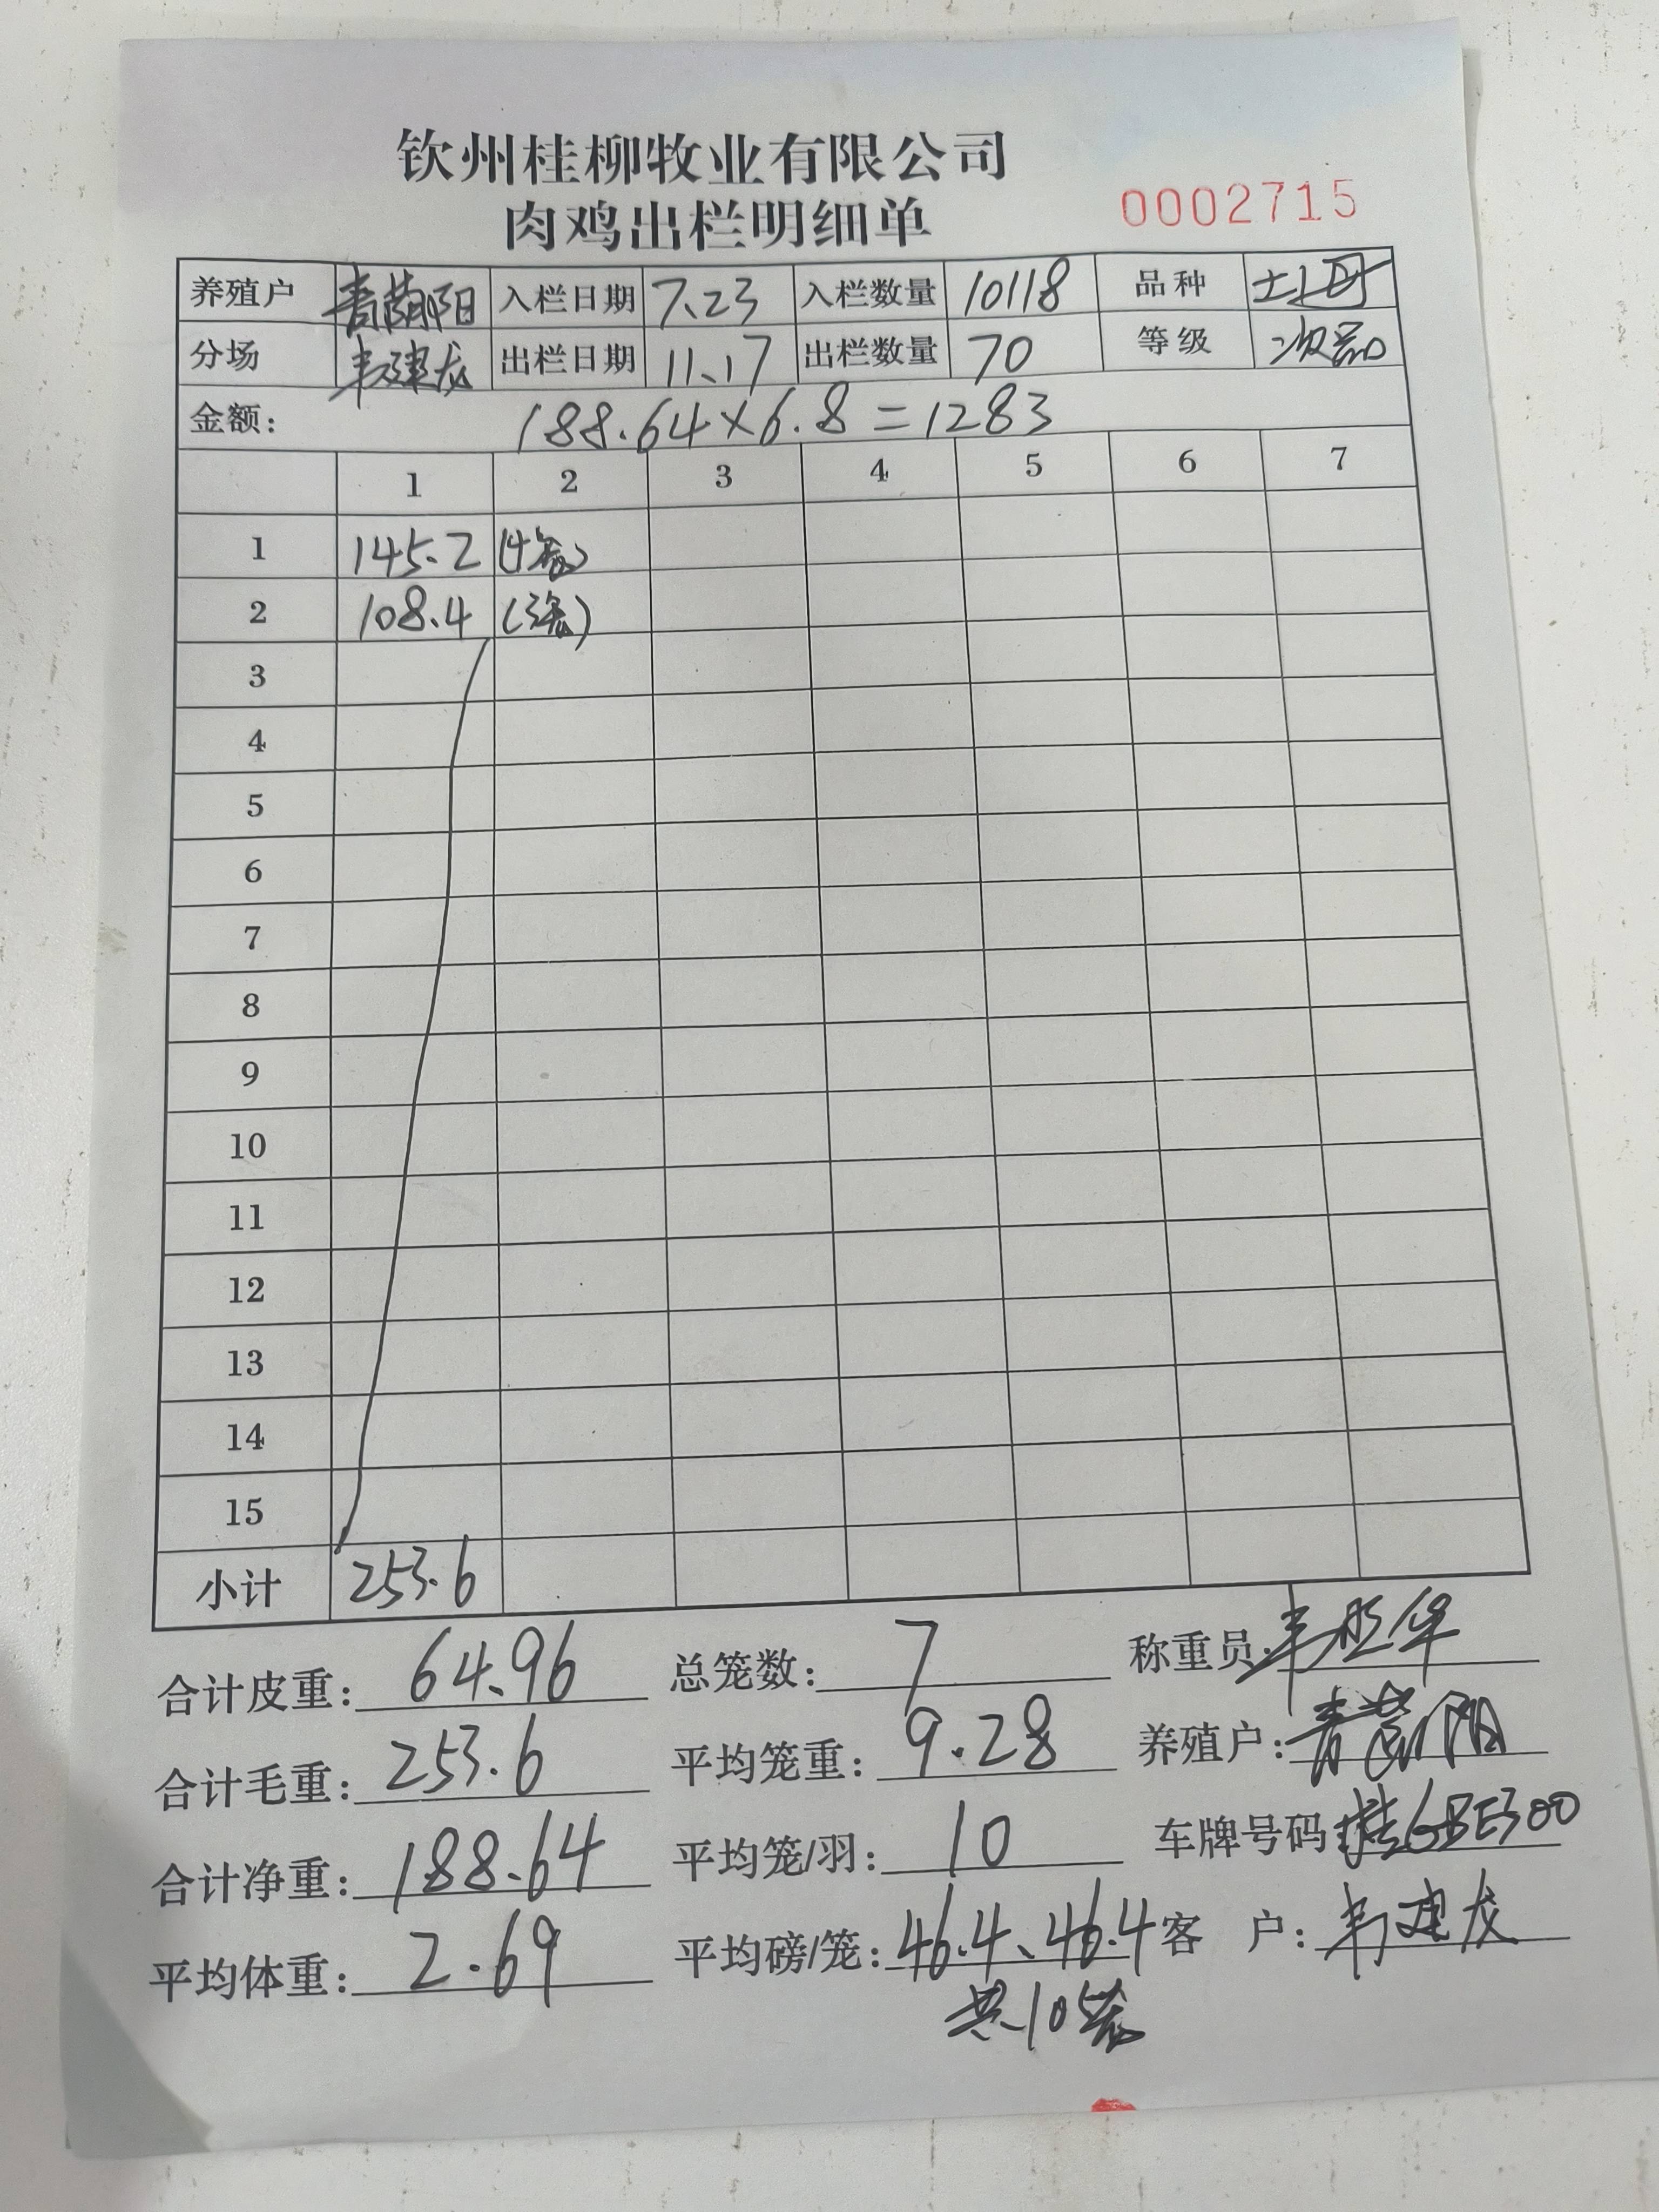 钦州桂柳牧业有限公司
肉鸡出栏明细单
0002715
养殖户 入栏日期 7.23 入栏数量 10118 品种 土2母
分场 韦建龙 出栏日期 11.17 出栏数量 70 等级 次品
金额: 188.64×6.8=1283
1 2 3 4 5 6 7
1 145.2 (4笼)
2 108.4 (3笼)
3
4
5
6
7
8
9
10
11
12
13
14
15
小计 253.6
合计皮重: 64.96 总笼数: 7 称重员:
合计毛重: 253.6 平均笼重: 9.28 养殖户:
合计净重: 188.64 平均笼/羽: 10 车牌号码 桂GBE300
平均体重: 2.69 平均磅/笼: 46.4、46.4 客 户: 韦建龙
共10笼